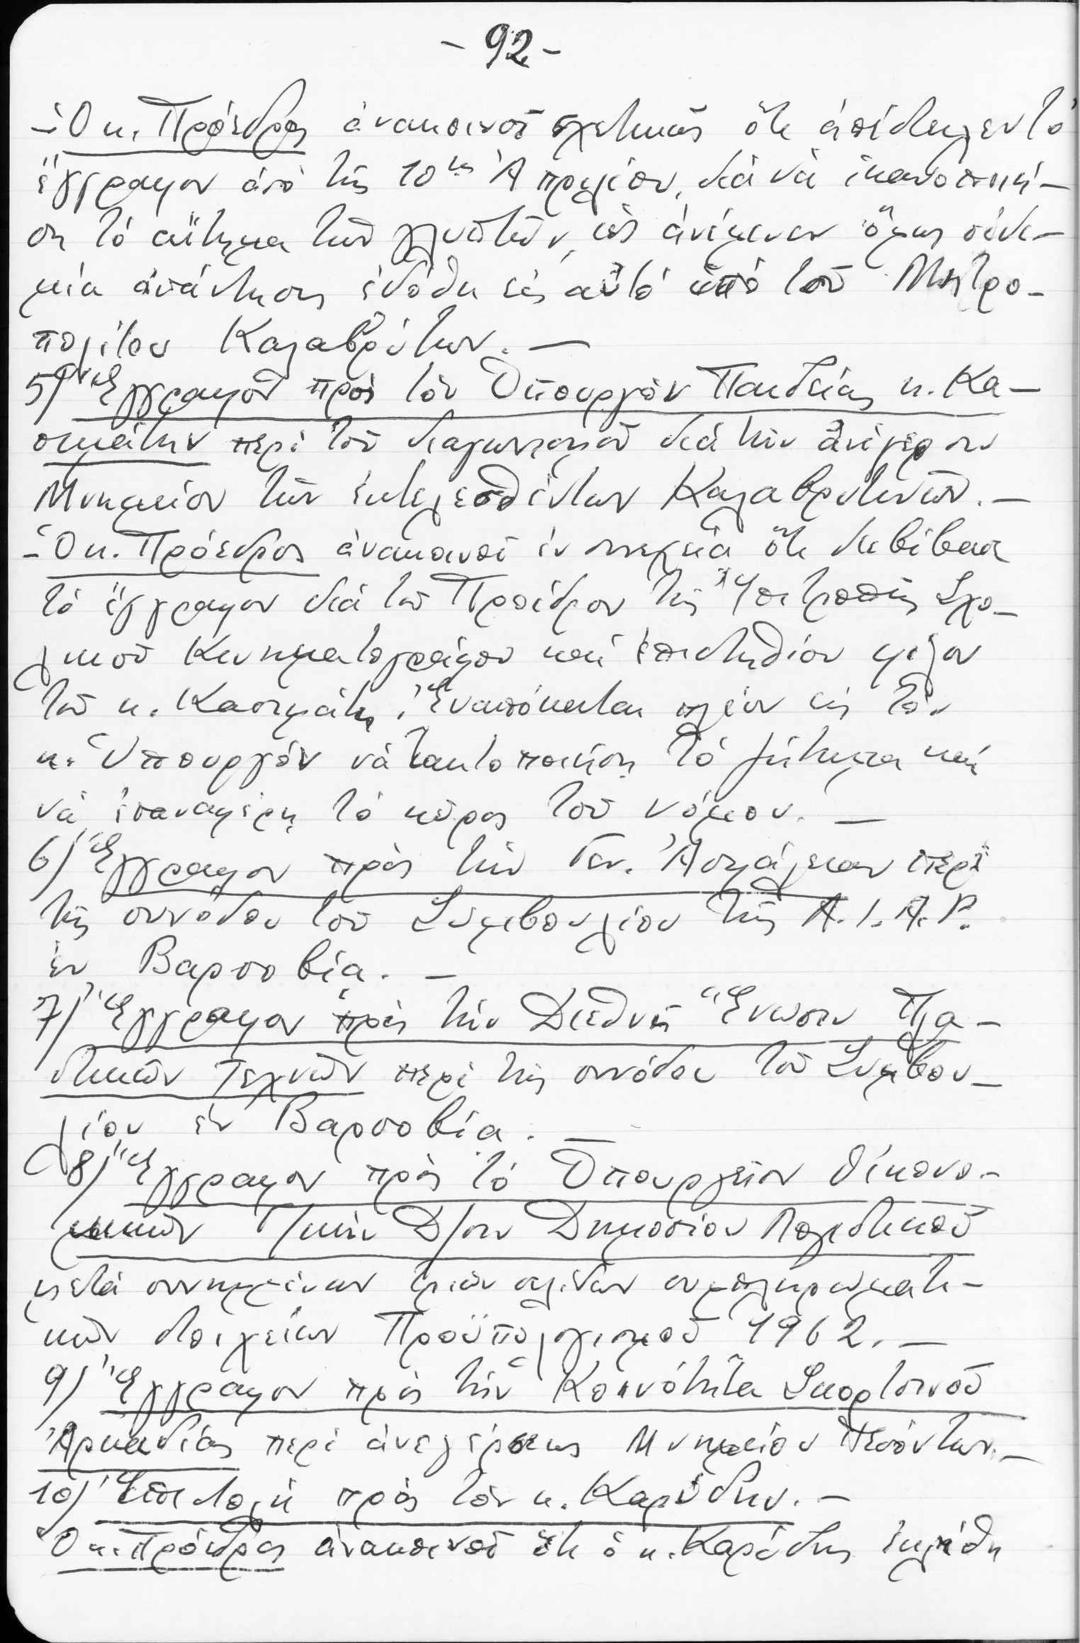 - 92 -
- Ὁ κ. Πρόεδρος ἀνακοινοῖ σχετικῶς ὅτι ἀπέστειλεν τό
ἔγγραφον ἀπό τῆς 10ης Ἀπριλίου, διά νά ἱκανοποιή-
ση τό αἴτημα τῶν γλυπτῶν, ὡς ἀνέμενεν ὅμως οὐδε-
μία ἀπάντησις ἐδόθη εἰς αὐτό ὑπό τοῦ Μητρο-
πολίτου Καλαβρύτων. —
5) Ἔγγραφον πρός τόν Ὑπουργόν Παιδείας κ. Κα-
σιμάτην περί τοῦ διαγωνισμοῦ διά τήν ἀνέγερσιν
Μνημείου τῶν ἐκτελεσθέντων Καλαβρυτινῶν. —
- Ὁ κ. Πρόεδρος ἀνακοινοῖ ἐν συνεχείᾳ ὅτι διεβίβασε
τό ἔγγραφον διά τοῦ Προέδρου τῆς Ἐπιτροπῆς Σχο-
λικοῦ Κινηματογράφου καί ἐπιστηθίου φίλου
τοῦ κ. Κασιμάτη. Ἐναπόκειται πλέον εἰς τόν
κ. Ὑπουργόν νά τακτοποιήση τό ζήτημα καί
νά ἐπαναφέρῃ τό κῦρος τοῦ νόμου. —
6) Ἔγγραφον πρός τήν Γεν. Ἀσφάλειαν περί
τῆς συνόδου τοῦ Συμβουλίου τῆς A.I.A.P.
ἐν Βαρσοβίᾳ. —
7) Ἔγγραφον πρός τήν Διεθνῆ Ἕνωσιν Πλα-
στικῶν Τεχνῶν περί τῆς συνόδου τοῦ Συμβου-
λίου ἐν Βαρσοβίᾳ. —
8) Ἔγγραφον πρός τό Ὑπουργεῖον Οἰκονο-
μικῶν Γ/κήν Δ/σιν Δημοσίου Λογιστικοῦ
μετά συνημμένων τριῶν σελίδων συμπληρωματι-
κῶν στοιχείων Προϋπολογισμοῦ 1962. —
9) Ἔγγραφον πρός τήν Κοινότητα Σκορτσινοῦ
Ἀρκαδίας περί ἀνεγέρσεως Μνημείου Πεσόντων. —
10) Ἐπιστολή πρός τόν κ. Καρύδην. —
Ὁ κ. Πρόεδρος ἀνακοινοῖ ὅτι ὁ κ. Καρύδης ἐκλήθη